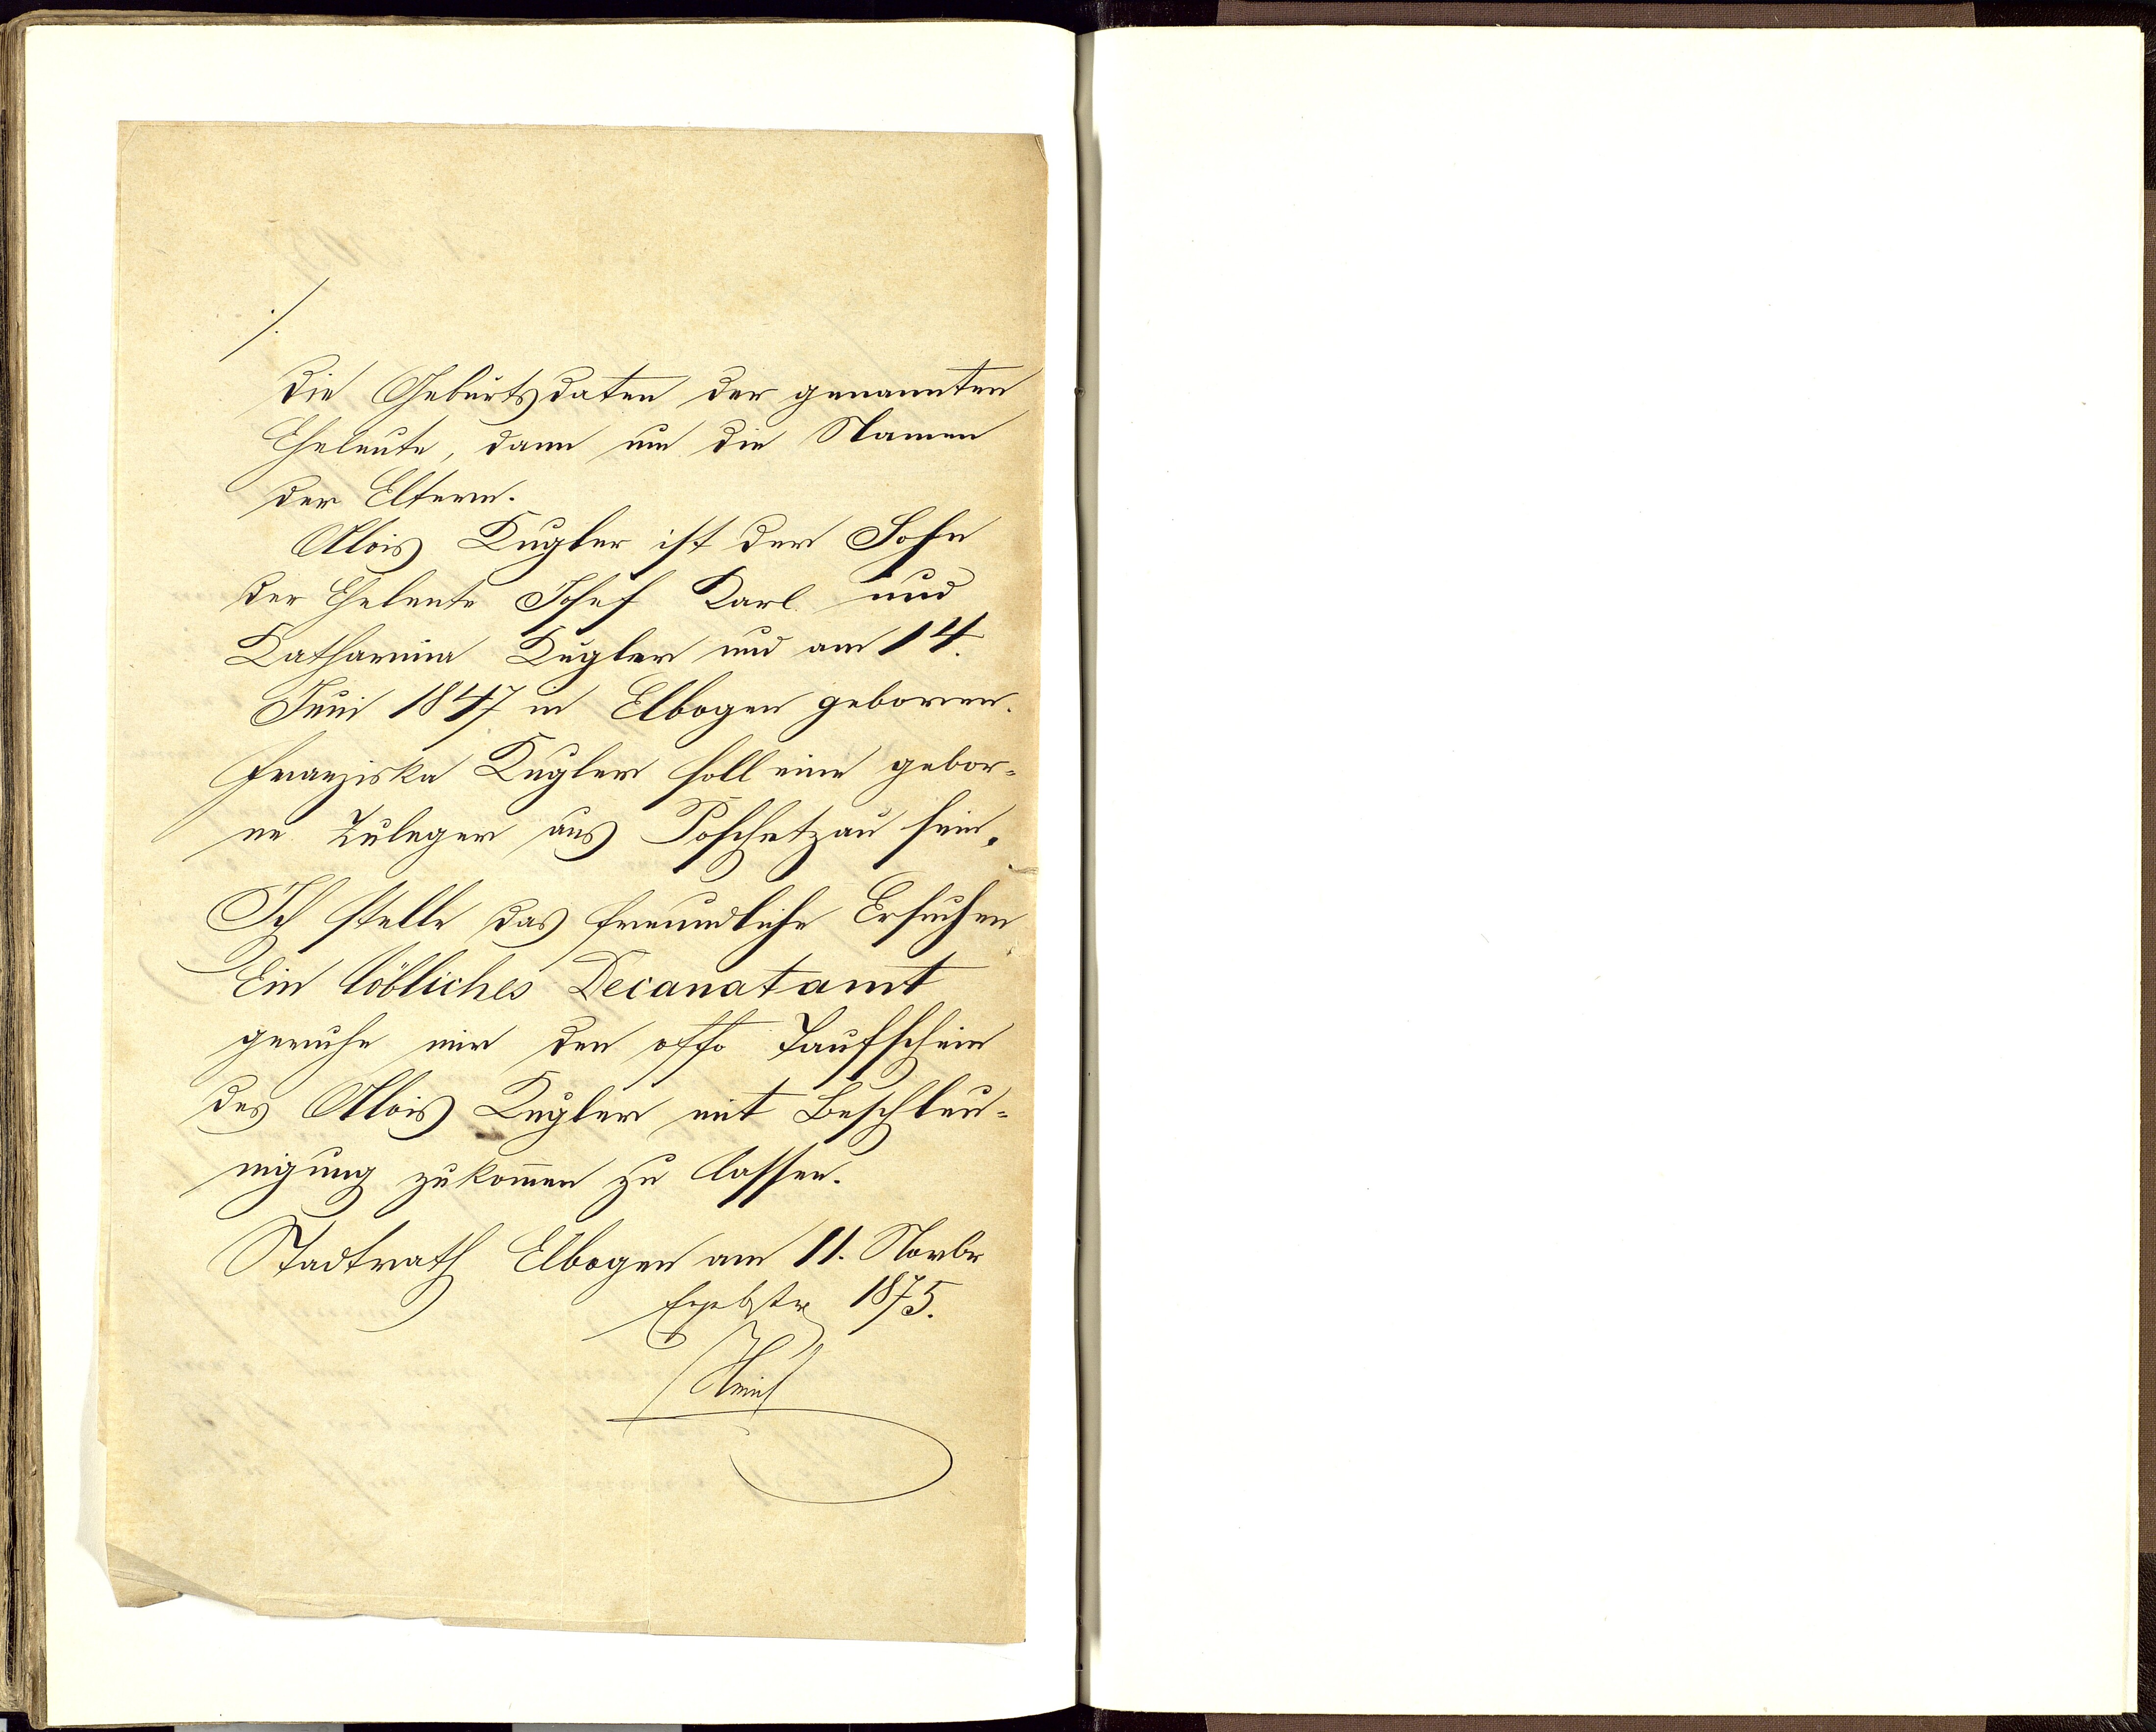 ./.
die Geburtsdaten der genannten
Eheleute, dann um die Namen
der Eltern.
Alois Kugler ist der Sohn
der Eheleute Josef Karl und
Katharina Kugler und am 14.
Juni 1847 in Elbogen geboren.
Franziska Kugler soll eine gebor-
ne Zuleger aus Poschetzau sein.
Ich stelle das freundliche Ersuchen
Ein löbliches Decanatamt
geruhe mir den offo Taufschein
des Alois Kugler mit Beschleu-
nigung zukom̅en zu lassen.
Stadtrath Elbogen am 11. Novbr
1875.